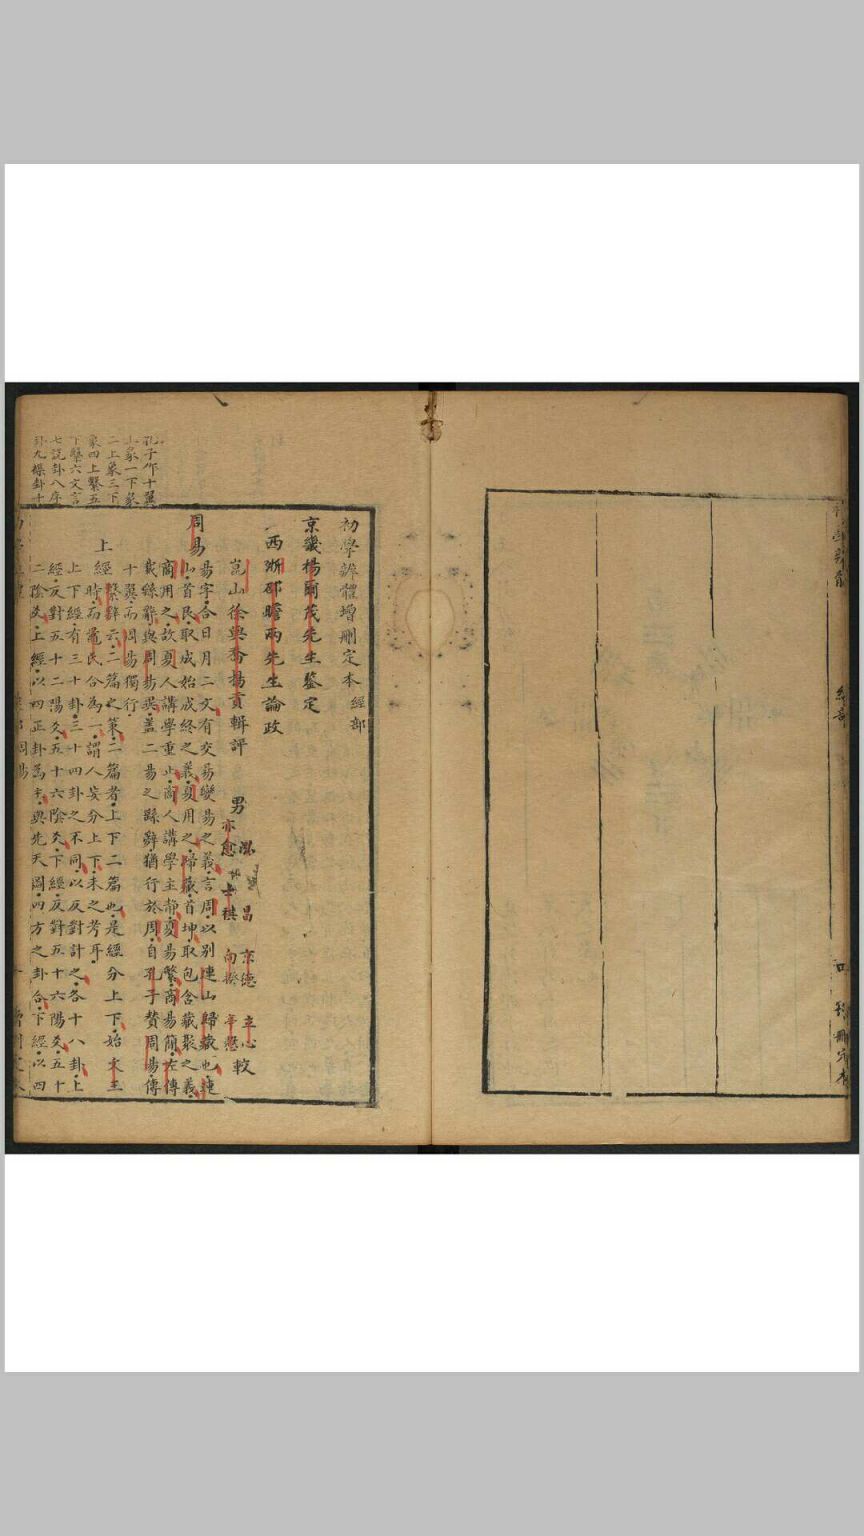 初學辨體增刪定本 經部
京畿楊爾茂先生鑒定
西浙邵瞻兩先生論政
崑山徐與喬揚貢輯評
男
亦愈
泓
昌
京德
向
立心
辛懋
較
周易
易字合日月二文有交易變易之義言周以別連山歸藏也連
山首艮取成始成終之義夏用之歸藏首坤取包含藏聚之義
商用之故夏人講學重止商人講學主靜夏易繁商易簡左傳
載繇辭與周易異蓋二易之繇辭猶行於周自孔子贊周易傳
十翼而周易獨行
上經
繫辭云二篇之策二篇者上下二篇也是經分上下始文王
時而鼂氏合為一謂人妄分上下未之考耳
上下經有三十卦三十四卦之不同以反對計之各十八卦上
經反對五十二陽爻五十六陰爻下經反對五十六陽爻五十
二陰爻上經以四正卦為主與先天圖四方之卦合下經以四
孔子作十翼
上彖一下彖
二上象三下
象四上繫五
下繫六文言
七說卦八序
卦九襍卦十